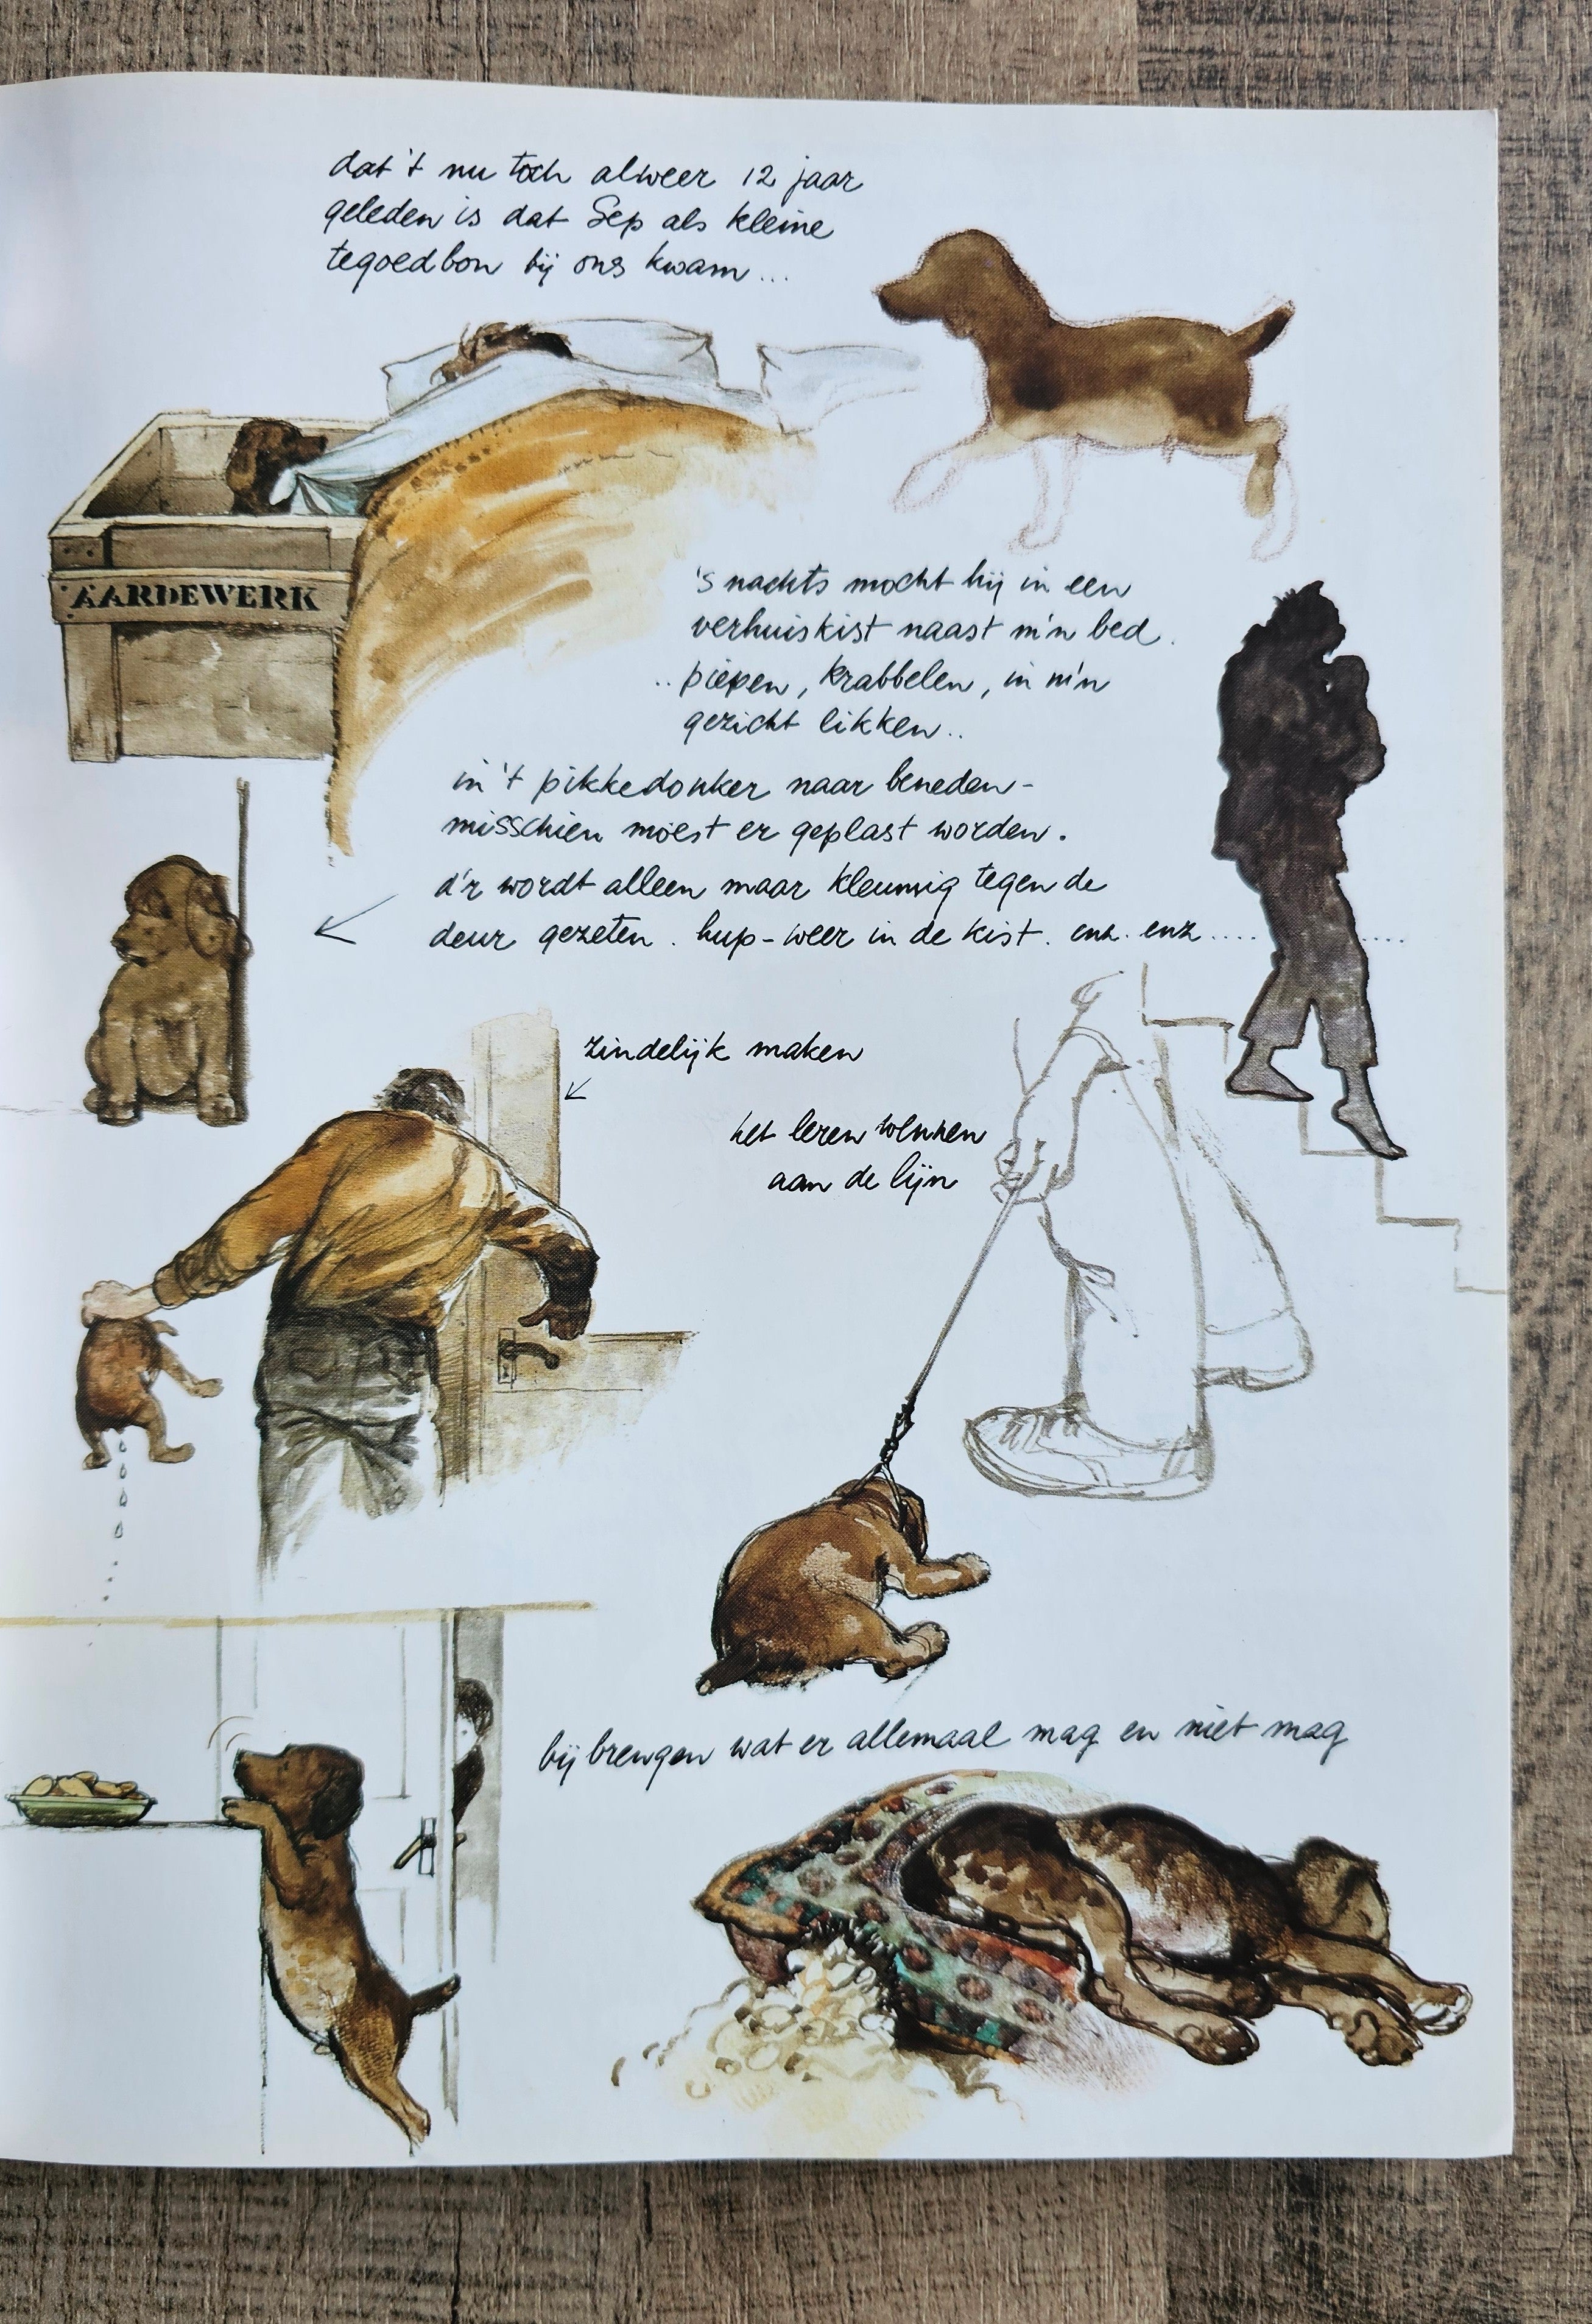 dat 't nu toch alweer 12 jaar
geleden is dat Sep als kleine
tegoedbon bij ons kwam...
AARDEWERK
's nachts mocht hij in een
verhuiskist naast m'n bed.
..piepen, krabbelen, in m'n
gezicht likken..
in 't pikkedonker naar beneden-
misschien moest er geplast worden.
d'r wordt alleen maar kleumig tegen de
deur gezeten. hup-weer in de kist. enz. enz..........
zindelijk maken
het leren wennen
aan de lijn
bij brengen wat er allemaal mag en niet mag